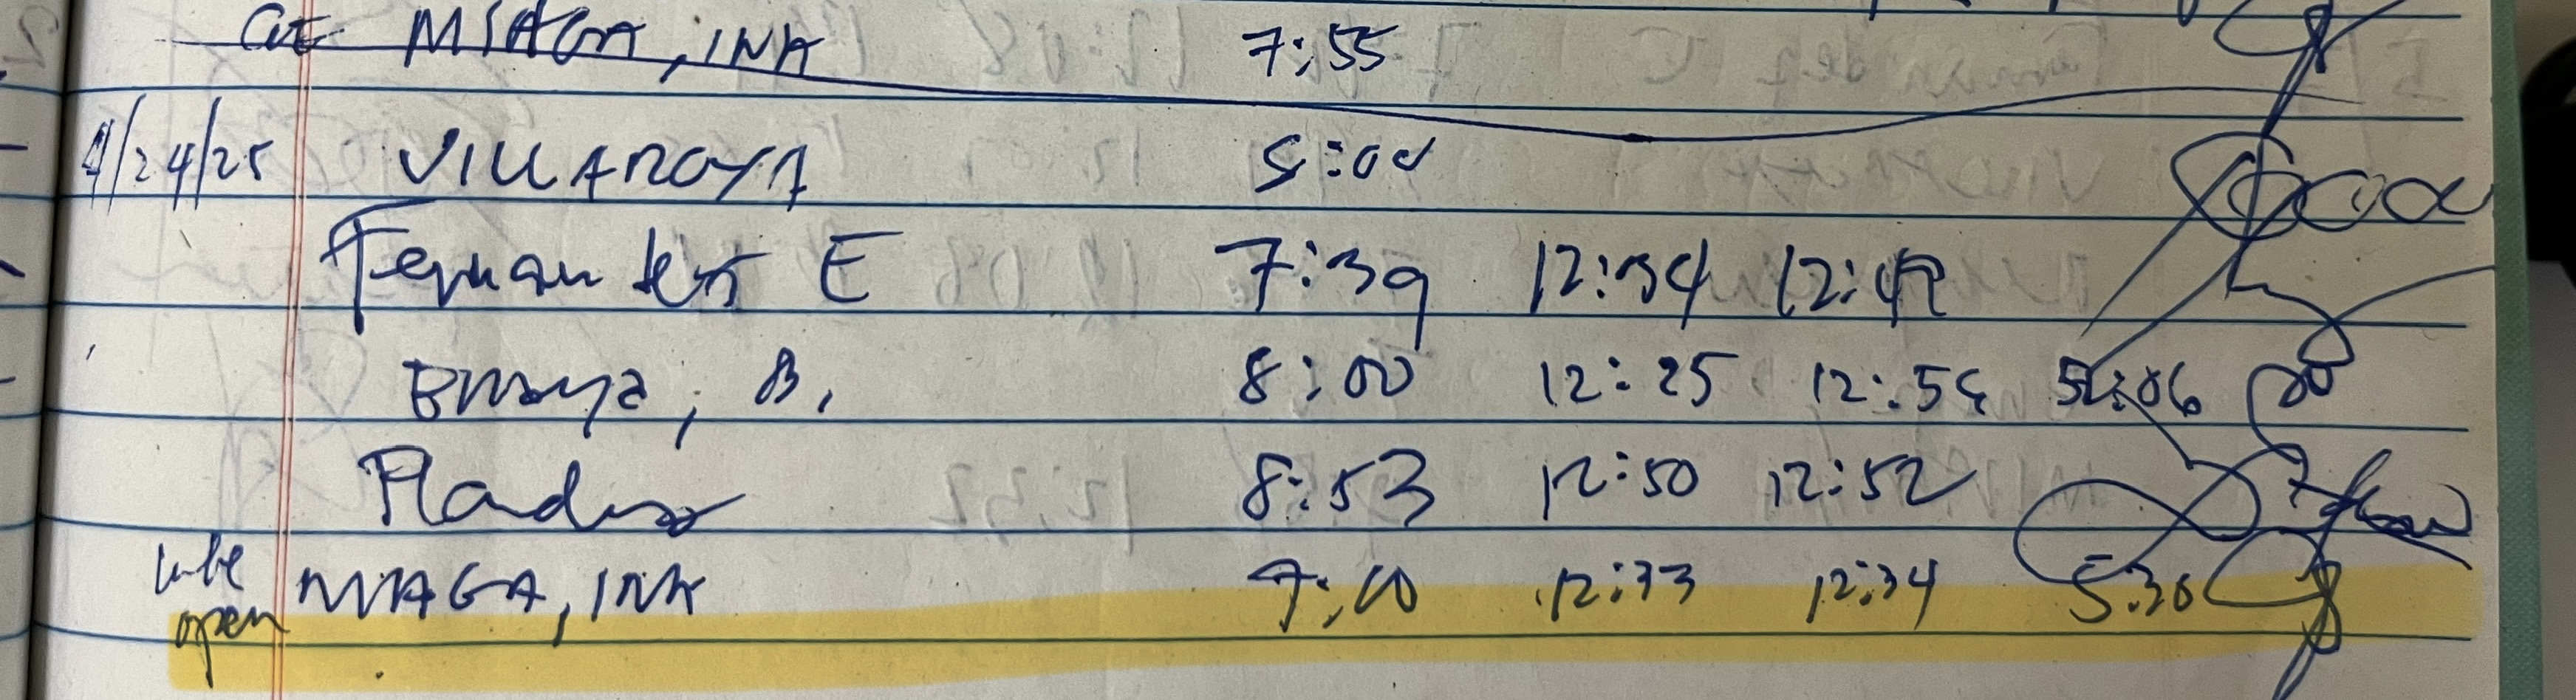 MIAGA, INA 7:55
4/24/25 VILLAROYA 5:00
Fernandez E 7:39 12:34 12:42
Bmaya, B. 8:00 12:25 12:54 5:06
8:53 12:50 12:52
open MIAGA, INA 7:10 12:33 12:34 5:30